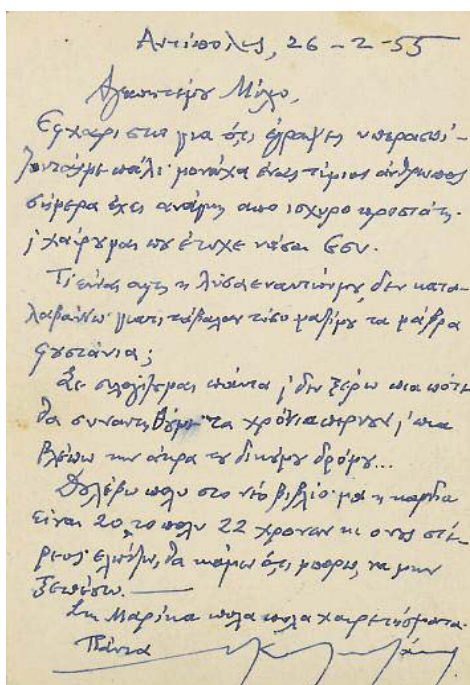 Αντίπολις, 26-2-55
Αγαπητέμου Μίλο,
Εφχαριστω για ό,τι έγραψες υπερασπί-
ζοντάς με πάλι· μονάχα ένας τίμιος άνθρωπος
σήμερα έχει ανάγκη απο ισχυρο προστάτη·
ι χαίρουμαι που έτυχε νάσαι Εσυ.
Τί είναι αφτη η λύσα εναντίομου, δεν κατα-
λαβαίνω· γιατι τάβαλαν τόσο μαζίμου τα μάβρα
φυστάνια;
Σε συλογίζομαι πάντα ι δεν ξέρω πια πότε
θα συναντηθούμε· τα χρόνια περνουν ι πια
βλέπω την άκρα του δικούμου δρόμου...
Δουλέβω πολυ στο νέο βιβλίο· μα η καρδια
είναι 20, το πολυ 22 χρονων κι ο νους στέ-
ρεος· ελπίζω, θα κάμω ό,τι μπορω, να μην
ξεπέσω.—
Στη Μαρίκα πολα πολα χαιρετήσματα.
Πάντα